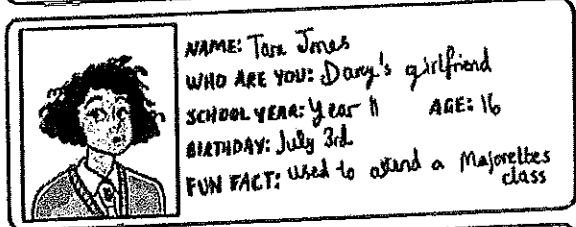 NAME: Tara Jones
WHO ARE YOU: Darcy's girlfriend
SCHOOL YEAR: Year 11 AGE: 16
BIRTHDAY: July 3rd
FUN FACT: used to attend a Majorettes
class